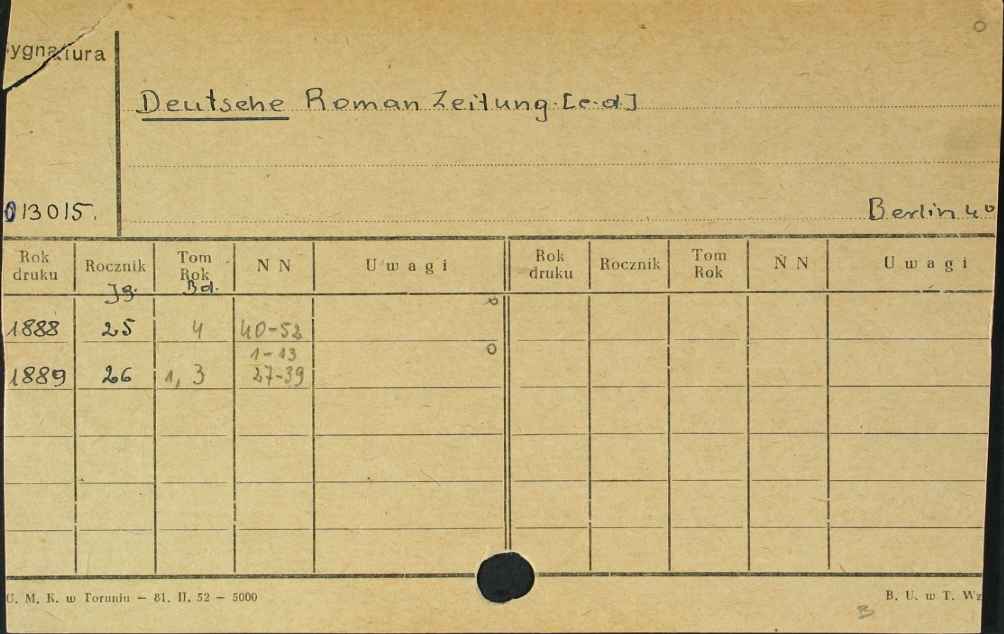 ygnatura
Deutsche Roman Zeitung. [c.d.]
013015.
Berlin 4º
Rok druku Rocznik Tom Rok N N Uwagi Rok druku Rocznik Tom Rok N N Uwagi
Jg. Bd.
1888 25 4 40-52
1-13
1889 26 1, 3 27-39
U. M. K. w Toruniu — 81. II. 52 — 5000
B. U. w T. Wz
B